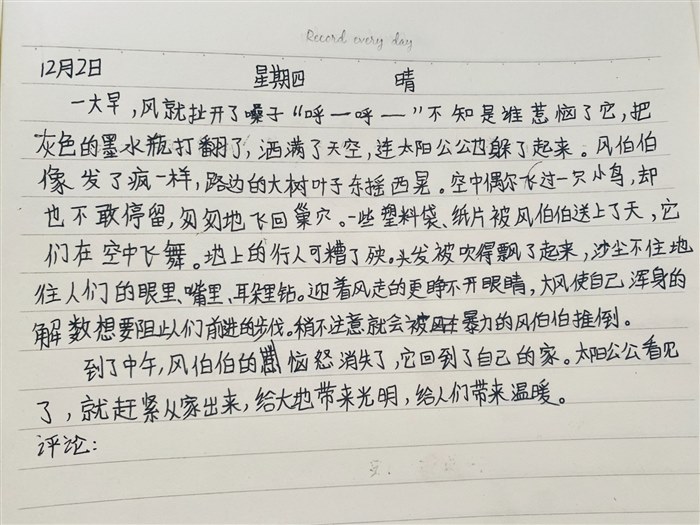 Record every day
12月2日 星期四 晴
一大早，风就扯开了嗓子“呼一呼一”不知是谁惹恼了它，把
灰色的墨水瓶打翻了，洒满了天空，连太阳公公也躲了起来。风伯伯
像发了疯一样，路边的大树叶子东摇西晃。空中偶尔飞过一只小鸟，却
也不敢停留，匆匆地飞回巢穴。一些塑料袋、纸片被风伯伯送上了天，它
们在空中飞舞。地上的行人可糟了殃。头发被吹得飘了起来，沙尘不住地
往人们的眼里、嘴里、耳朵里钻。迎着风走的更睁不开眼睛，大风使自己浑身的
解数想要阻止人们前进的步伐。稍不注意就会被暴力的风伯伯推倒。
到了中午，风伯伯的恼怒消失了，它回到了自己的家。太阳公公看见
了，就赶紧从家出来，给大地带来光明，给人们带来温暖。
评论：